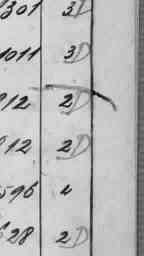 301 3D
1011 3D
912 2D
912 2D
596 2
628 2D